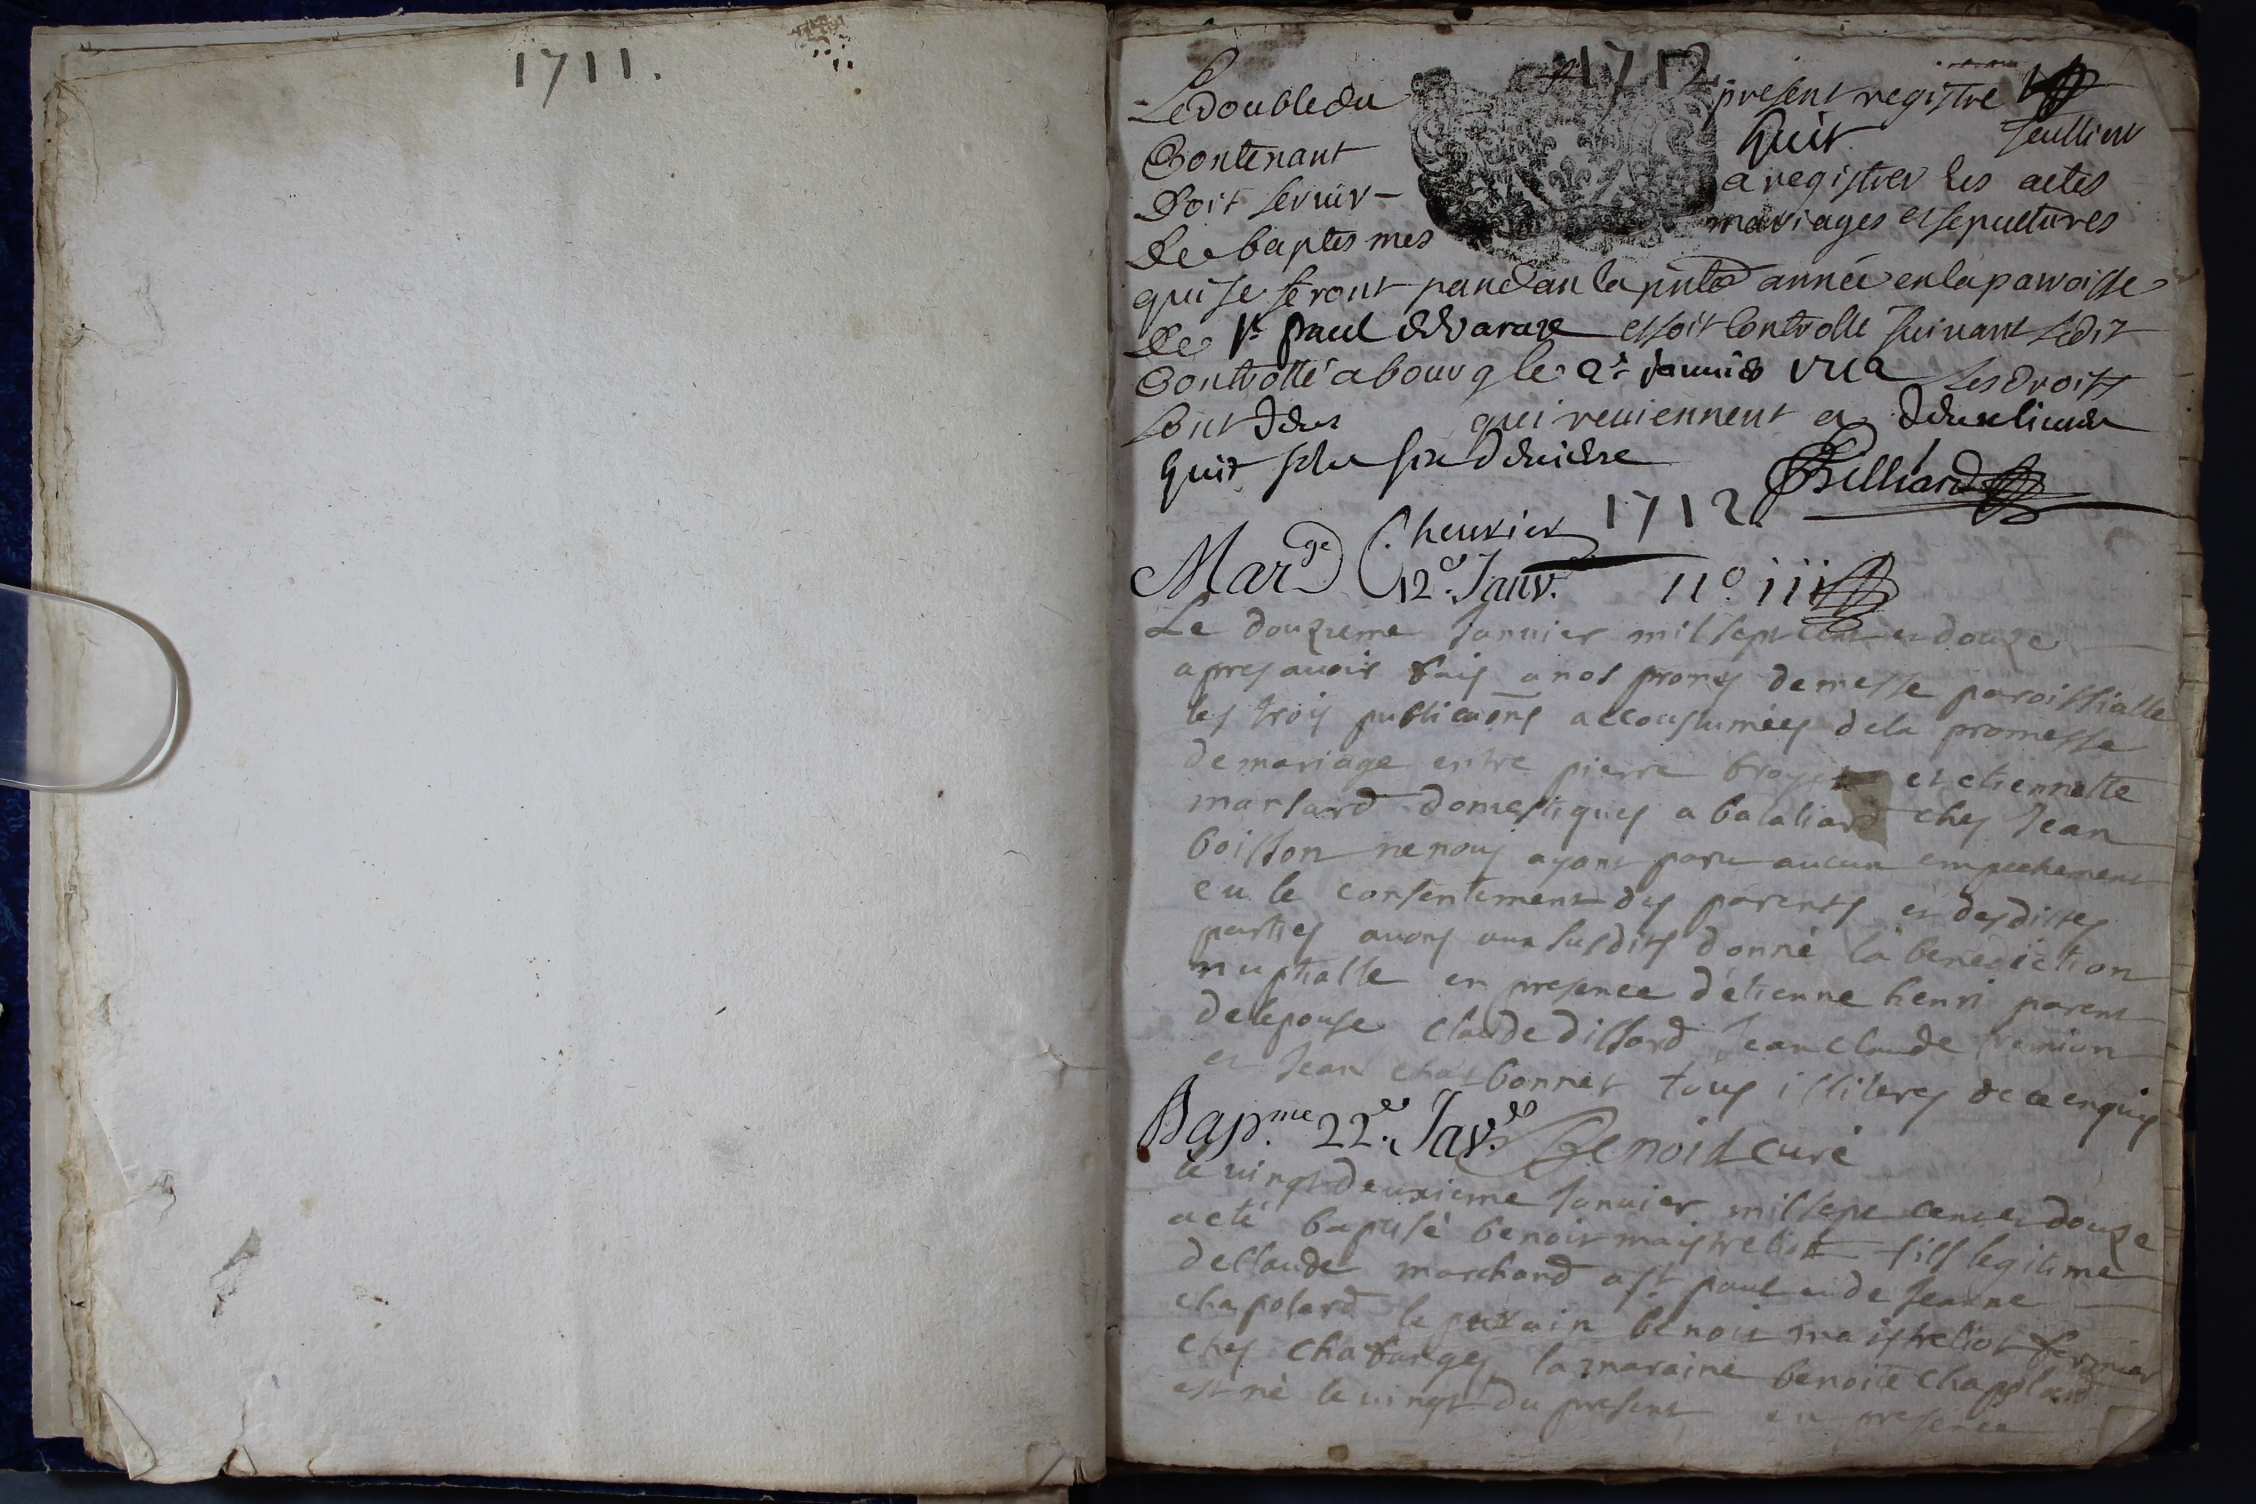 1711.
1712
Le double du present registre
Contenant huit feullietz
Doit servir a registrer les actes
De baptesmes mariages et sepultures
qui se feront pandan la pnte année en la parroisse
De st paul de varax et soit controlle suivant ledit
Controllé a bourg le 2e janvier 1712 Les droits
sont deus qui reviennent a deux livres
huit sols six deniers
Billiard
1712.
Marge Cheurier
12e. Janv. no. iii
Le douzieme Januier mil sept cent et douze
apres auoir fais a nos prones de messe paroissialle
les trois publicaõns accoustumées de la promesse
de mariage entre pierre broyer et etiennette
marsard domestiques a bataliard ches Jean
boisson ne nous ayant paru aucun empechement
eu le consentement des parents et des dittes
parties auons aux susdits donné la benediction
nuptialle en presence d'etienne henri parent
de lepouse claude dissard Jean claude
et Jean charbonnet tous illiteres de ce enquis
Bap.me 22e. Jav. Benoid curé
le uingt deuxieme Januier mil sept cent et douze
a eté baptisé benoit maistreliot fils legitime
de claude marchand a st paul et de Jeanne
chapolard le parain benoit maistreliot fermier
ches chafanges la maraine benoite chapolard
est né le uingt du present en presence